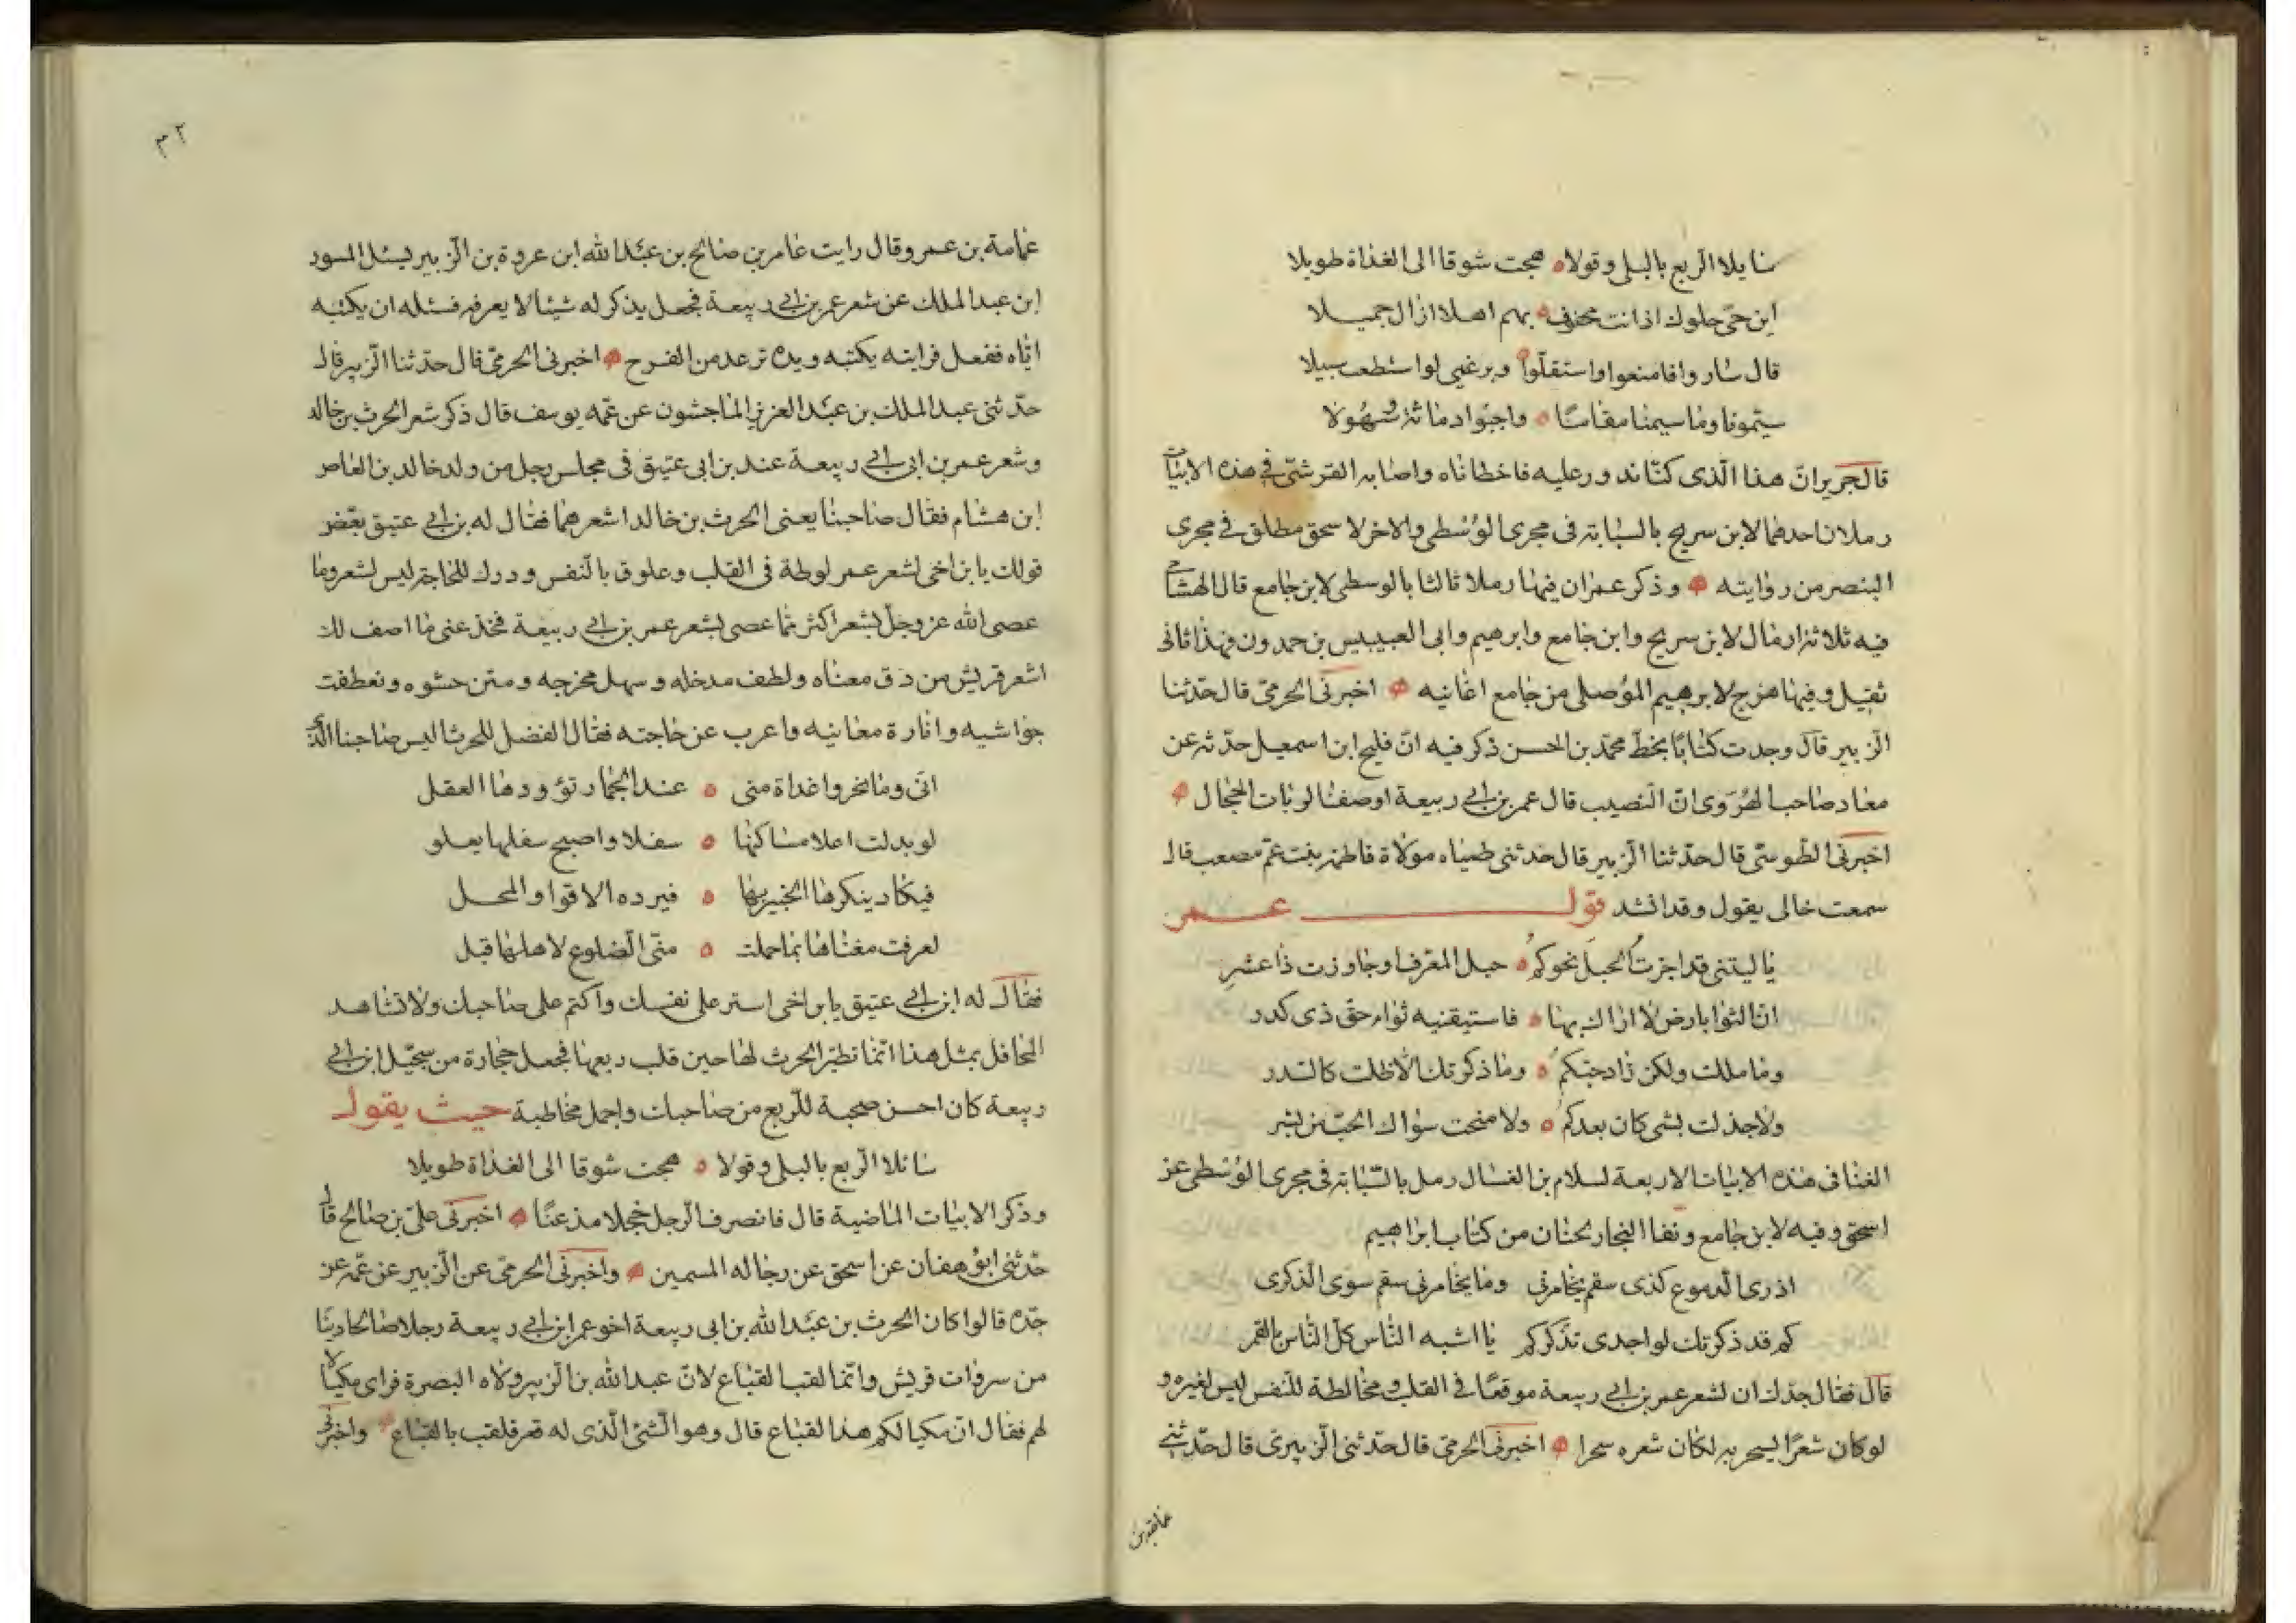 سايلا الربع بالبلى وقولا ه هجت شوقا الى الغداة طويلا
اين حىّ حلوك اذ انت محفوف ه بهم اهلا ازال جميلا
قال سار وافامنعوا واستقلّوا ه وبرغمى لوا ستطعت سبيلا
سئمونا وما سيمنا مقامًا ه واجبّوا دماثة وسُهُولا
قال جرير انّ هذا الّذى كنّا ندور عليه فاخطاناه واصابه القرشىّ فى هذه الابيات
رملان احدهما لابن سريج بالسبابة فى مجرى الوُسْطى والاخر لاسحق مطلق فى مجرى
البنصر من روايته وذكر عمران فيها رملا ثالثا بالوسطى لابن جامع قال الهشامى
فيه ثلاثة ارمال لابن سريج وابن جامع وابرهيم وابى العبيبيس بن حمدون فيهذا ثانى
ثقيل وفيها هزج لابرهيم الموُصلى من جامع اغانيه اخبرنى الحرمىّ قال حدّثنا
الزبير قال وجدت كتابًا بخطّ محمّد بن الحسن ذكر فيه انّ فليح ابن اسمعيل حدّثه عن
معاد صاحب الهُرَوى انّ النصيب قال عمر بن ابى ربيعة اوصفنا لوبات الحجال
اخبرنى الطّوسىّ قال حدّثنا الزّبير قال حدثنى ظمياه مولاة فاطمة بنت عمّ مصعب قال
سمعت خالى يقول وقد انشد قول عمر
يا ليتنى قد اجزتُ الحبلَ نحوكمُ ه حبل المعرف او جاوزت ذا عشر
انّ الثوا بارض لا اراك بها ه فاستيقنيه ثواء حق ذى كدر
وما مللت ولكن زاد حبّكمُ ه وما ذكرتك الا ظلت كالسدر
ولا جذلت بشى كان بعدكمُ ه ولا منحت سواك الحبّ من بشر
الغنا فى هذه الابيات الاربعة لسلام بن الغسال رمل بالسّبّابة فى مجرى الوُسْطى عن
اسحق وفيه لابن جامع وقفا النجار لحنان من كتاب ابراهيم
اذرى الدموع كذى سقم يخامرنى وما يخامرنى سقم سوى الذكرى
كم قد ذكرتك لو اجدى تذكّركم يا اشبه النّاس كلّ النّاس بالقمر
قال فقال جدّك ان لشعر عمر بن ابى ربيعة موقعًا فى القلب ومخالطة للنفس ليس لغيره و
لو كان شعرًا يسحر به لكان شعره سحرا اخبرنى الحرمىّ قال حدّثنى الزّبيرىّ قال حدّثنى
عمامة بن عمر وقال رايت عامر بن صالح بن عبْد الله ابن عروة بن الزّبير يسئل المسور
ابن عبد الملك عن شعر عمر بن ابى ربيعة فجعل يذكر له شيئا لا يعرفه فسئله ان يكتبه
ايّاه ففعل فرايته يكتبه ويده ترعد من الفرح اخبرنى الحرمىّ قال حدّثنا الزّبير قال
حدّثنى عبد الملك بن عبْد العزيز الماجشون عن عمّه يوسف قال ذكر شعر الحرث بن خالد
وشعر عمر بن ابى ابى ربيعة عند بن ابى عتيق فى مجلس رجل من ولد خالد بن العاصر
ابن هشام فقال صاحبنا يعنى الحرث بن خالد اشعرهما فقال له بن ابى عتيق بعّض
قولك يا بن اخى لشعر عمر لوطة فى القلب وعلوق بالنّفس ودرك للحاجة ليس لشعر وما
عصى الله عزوجلّ بشعر اكثر ممّا عصى بشعر عمر بن ابى ربيعة فخذ عنى ما اصف لك
اشعر قريش من دق معناه ولطف مدخله وسهل مخرجه ومتن حشوه وتعطفت
حواشيه وانارة معانيه واعرب عن حاجته فقال الفضل للحرث اليس صاحبنا الّذى
انّى وما نحروا غداة منى ه عند الجمار تؤودها العقل
لو بدلت اعلا مساكنها ه سفلا واصبح سفلها يعلو
فيكاد ينكرها الخبير بها ه فيرده الاقوا والمحل
لعرفت مغناها بما حملت ه منّى الضلوع لاهلها قبل
فقال له ابن ابى عتيق يا بن اخى استر على نفسك واكتم على صاحبك ولا تشاهد
المحافل بمثل هذا انّما تطيّر الحرث لها حين قلب ربعها فجعل حجارة من سجيّل ابن ابى
ربيعة كان احسن صحبة للرّبع من صاحبك واجمل مخاطبة حيث يقول
سائلا الربع بالبلى وقولا ه هجت شوقا الى الغداة طويلا
وذكر الابيات الماضية قال فانصرف الرجل خجلا مذعنًا اخبرنى علىّ بن صالح قال
حدّثنى ابُو هفان عن اسحق عن رجاله المسمين واخبرنى الحرمىّ عن الزّبير عن عمّه عن
جدّه قالوا كان الحرث بن عبْد الله بن ابى ربيعة اخو عمر ابن ابى ربيعة رجلا صالحا دينًا
من سروات قريش وانّما لقب القباع لانّ عبد الله بن الزّبير ولاه البصرة فراى مكيالا
لهم فقال انّ مكيالكم هذا لقباع قال وهو الشئ الّذى له قعر فلقب بالقباع واخبرنى